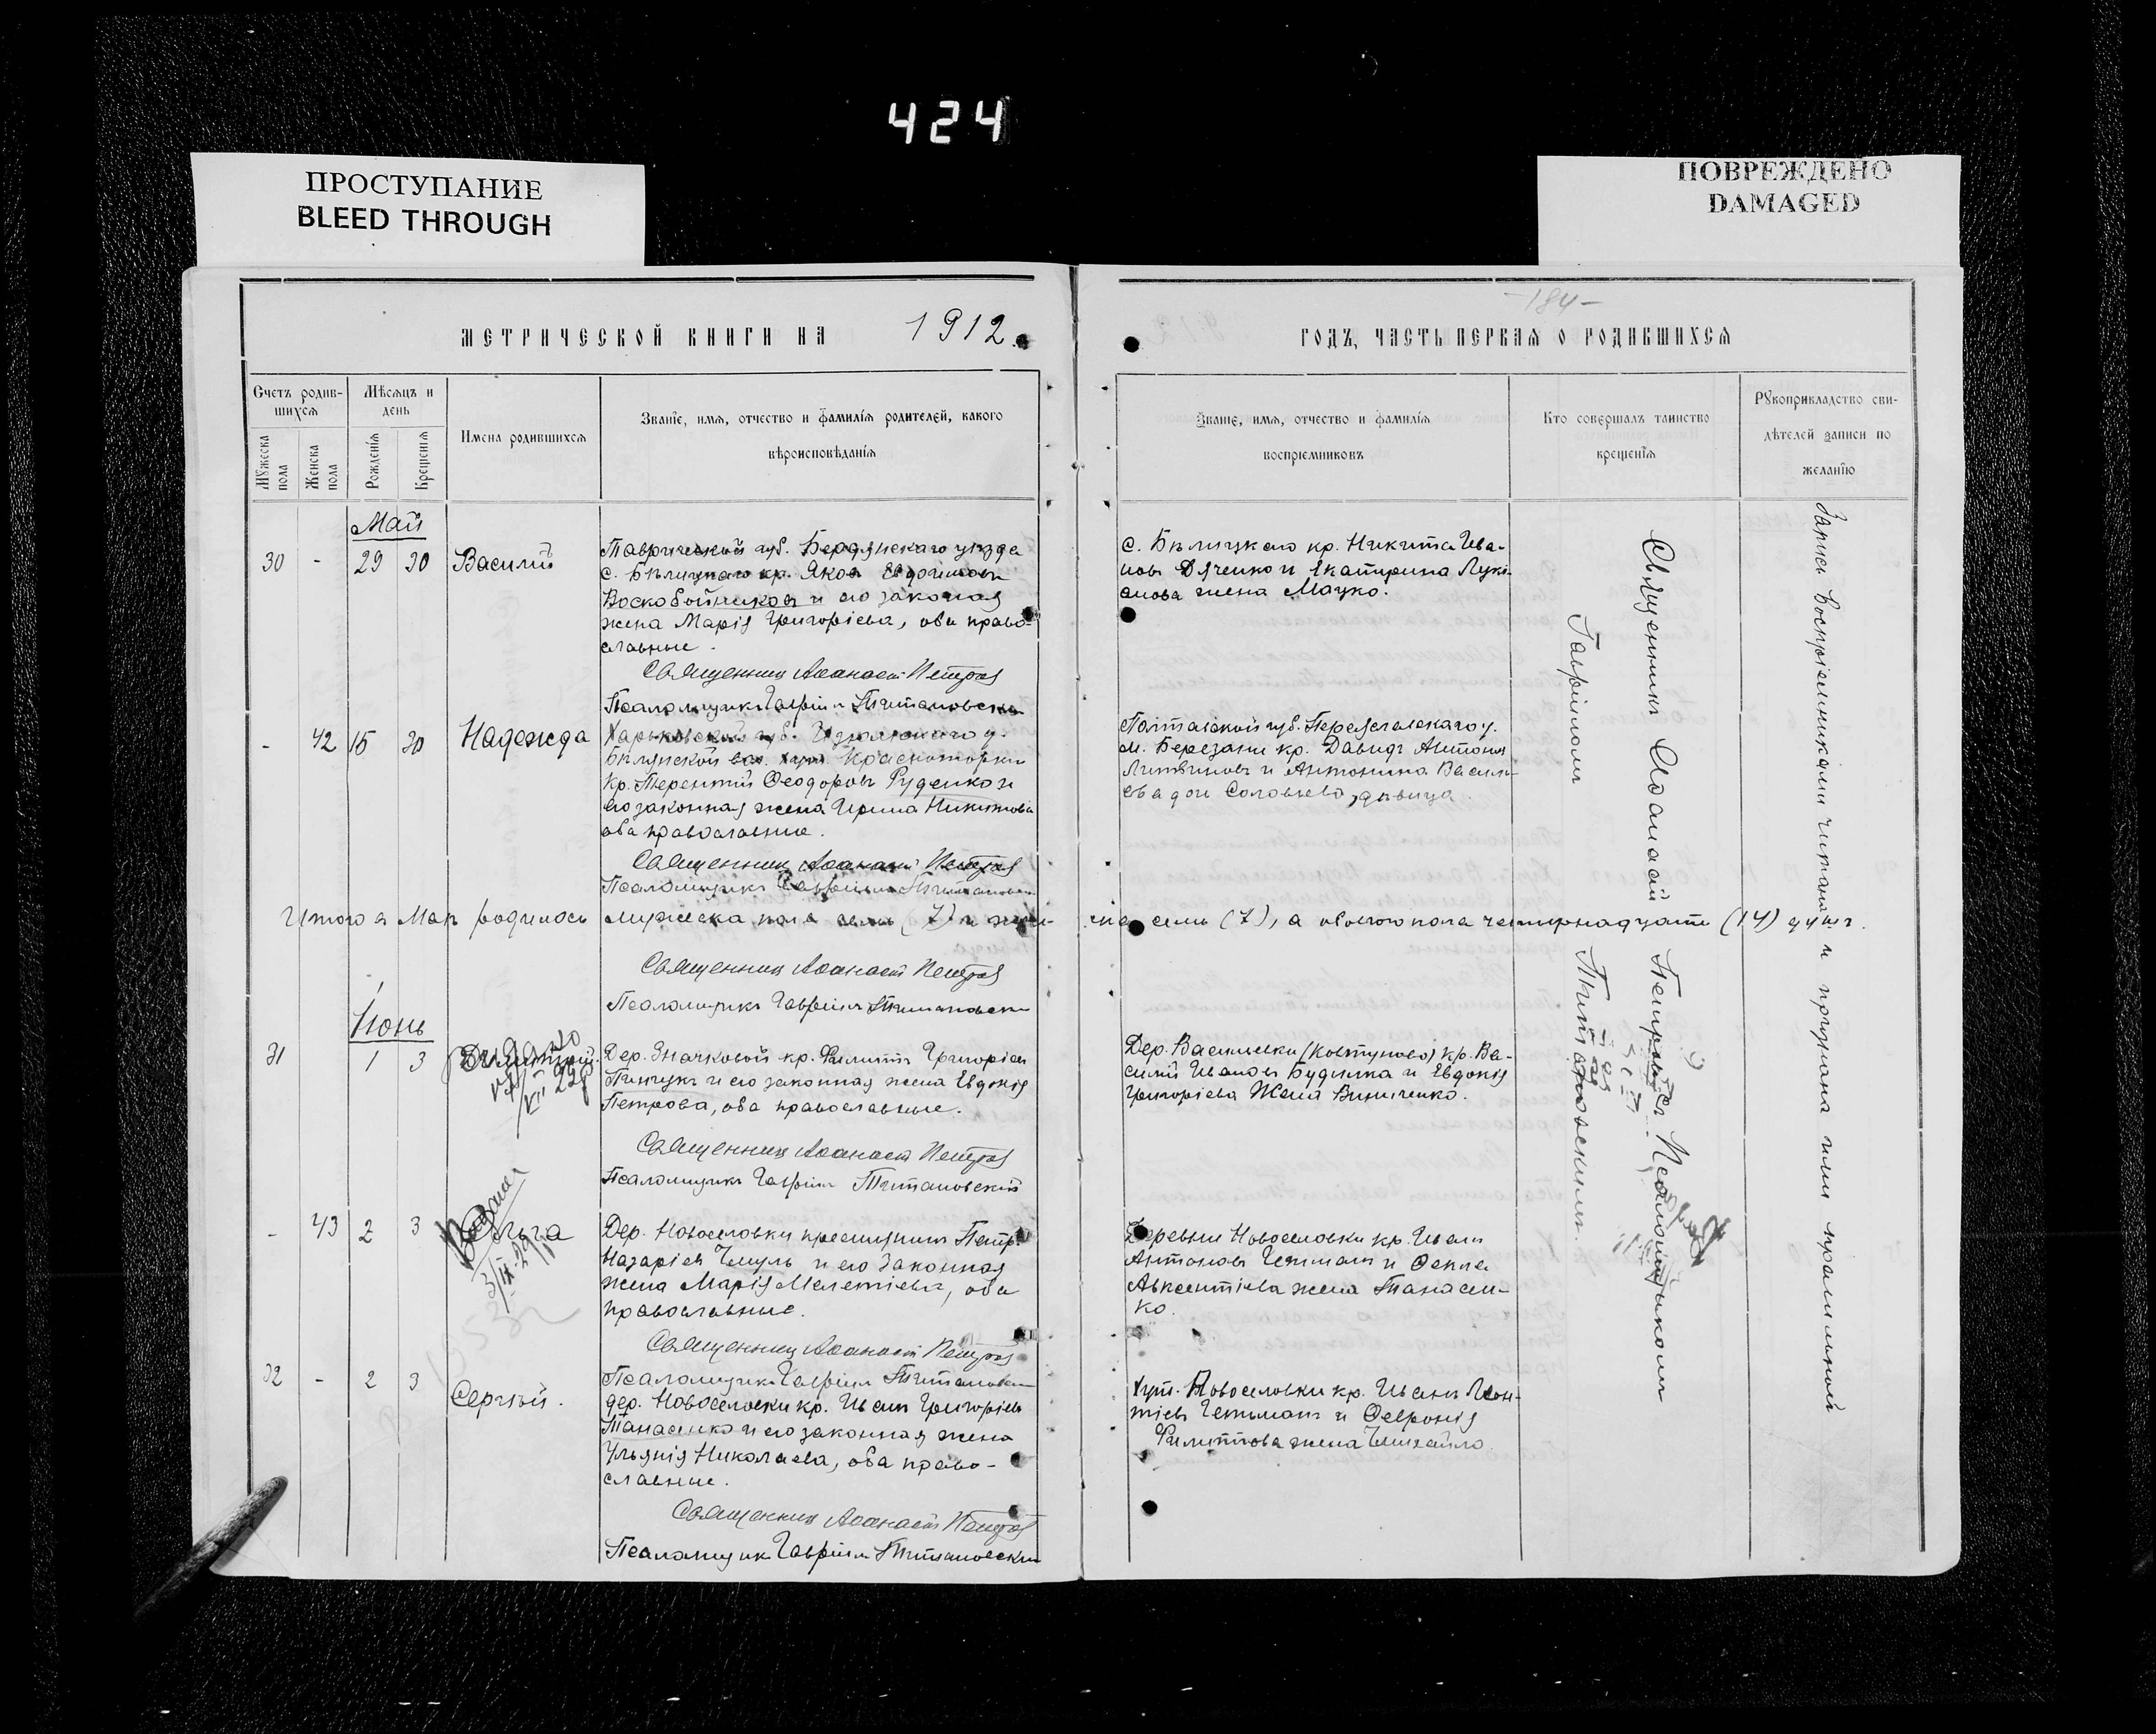 424
ПРОСТУПАНИЕ
BLEED THROUGH
ПОВРЕЖДЕНО
DAMAGED
МЕТРИЧЕСКОЙ КНИГИ НА 1912.
-184-
ГОДЪ, ЧАСТЬ ПЕРВАЯ О РОДИВШИХСЯ
Счетъ родив-
шихся
Мꙋжеска пола
Женска пола
Мѣсяцъ и
день
Рожденія
Крещенія
Имена родившихся
Званіе, имя, отчество и фамилія родителей, какого
вѣроисповѣданія
Званіе, имя, отчество и фамилія
воспріемниковъ
Кто совершалъ таинство
крещенія
Рꙋкоприкладство сви-
дѣтелей записи по
желанію
Май
30 - 29 30 Василій
Таврической губ. Бердянскаго уѣзда
с. Бѣлицкаго кр. Яковъ Евдокимовъ
Воскобойниковъ и его законная
жена Марія Григорьева, оба право-
славные.
Священникъ Аѳанасій Петровъ
Псаломщикъ Гавріилъ Титановскій
с. Бѣлицкаго кр. Никита Ива-
новъ Дяченко и Екатерина Луки-
анова жена Мацко.
- 42 15 30 Надежда
Харьковской губ. Изюмскаго у.
Кр. Терентій Ѳеодоровъ Руденко и
его законная жена Ирина Никитова
оба православные.
Священникъ Аѳанасій Петровъ
Псаломщикъ Гавріилъ Титановскій
Полтавской губ. Переяславскаго у.
м. Березани кр. Давидъ Антоновъ
Литвиновъ и Антонина Василь-
ева дочь Соловьева, дѣвица.
Итого въ Маѣ родилось мужеска пола семь (7) и жен-
ска семь (7), а обоего пола четырнадцать (14) душъ.
Священникъ Аѳанасій Петровъ
Псаломщикъ Гавріилъ Титановскій
Іюнь
31 1 3
Дер. Значковой кр. Филиппъ Григорьевъ
Пинчукъ и его законная жена Евдокія
Петрова, оба православные.
Священникъ Аѳанасій Петровъ
Псаломщикъ Гавріилъ Титановскій
Дер. Васильевки (Ковтуново) кр. Ва-
силій Ивановъ Будника и Евдокія
Григорьева жена Винниченко.
- 43 2 3 Ольга
Дер. Новоселовки крестьянинъ Петръ
Назарьевъ Чмуль и его законная
жена Марія Мелетіева, оба
православные.
Священникъ Аѳанасій Петровъ
Псаломщикъ Гавріилъ Титановскій
Деревни Новоселовки кр. Иванъ
Антоновъ Гетманъ и Ѳекла
Авксентіева жена Танасен-
ко.
32 - 2 3 Сергѣй.
дер. Новоселовки кр. Иванъ Григорьевъ
Танасенко и его законная жена
Ульянія Николаева, оба право-
славные.
Священникъ Аѳанасій Петровъ
Псаломщикъ Гавріилъ Титановскій
Хут. Новоселовки кр. Иванъ Леон-
тіевъ Гетьманъ и Ѳевронія
Филиппова жена
Священникъ Аѳанасій Петровъ съ Псаломщикомъ
Гавріиломъ Титановскимъ.
Запись воспріемниками читана и признана ими правильной